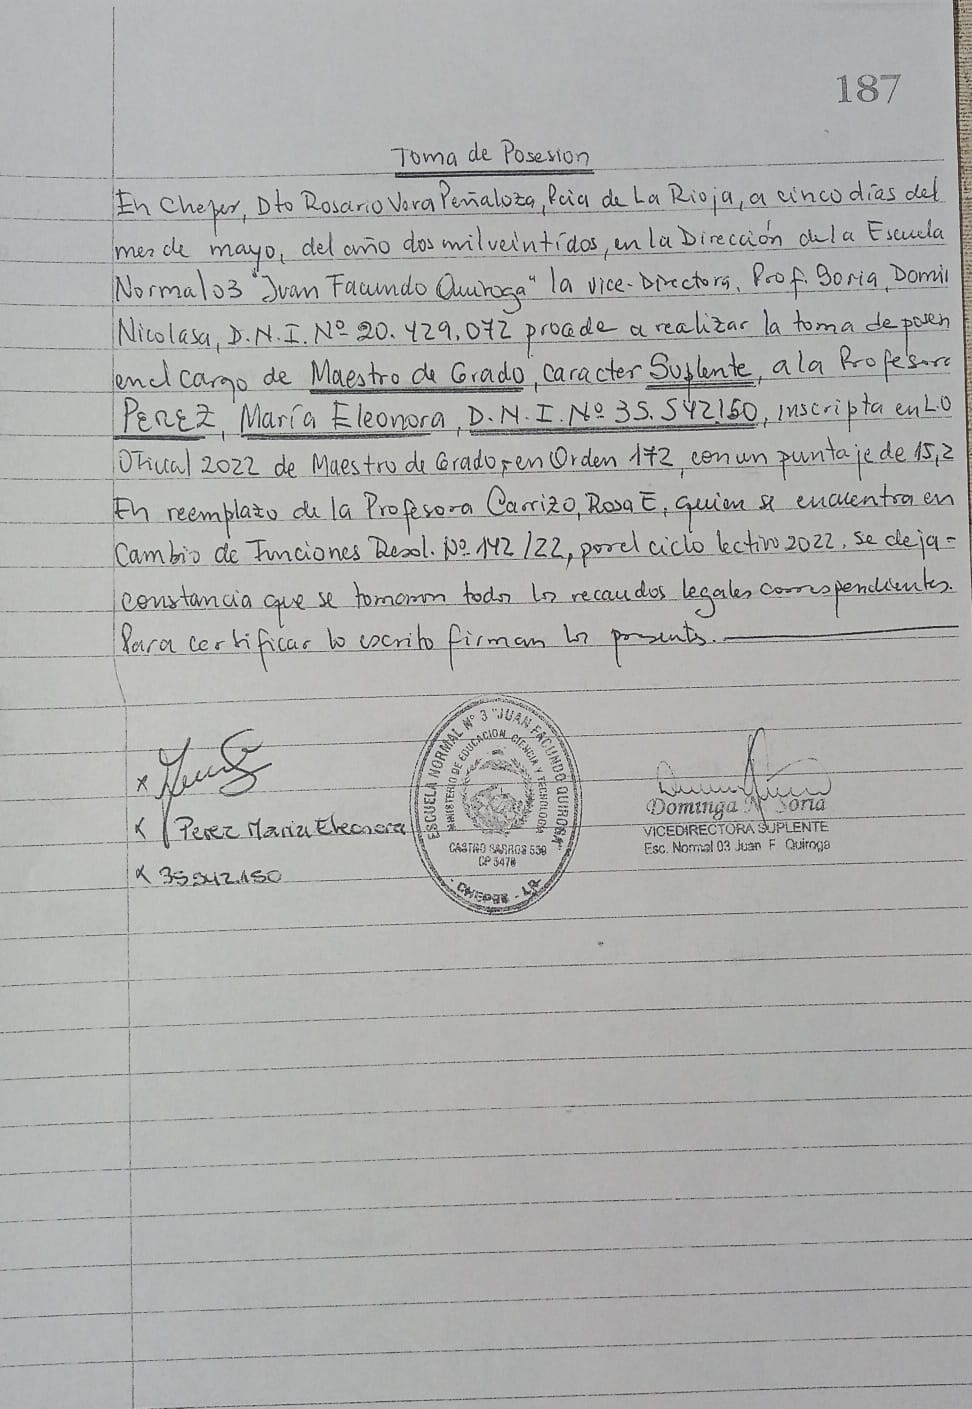 187
Toma de Posesion
En Chepes, Dto Rosario Vera Peñaloza, Pcia de La Rioja, a cinco días del
mes de mayo, del año dos mil veintidos, en la Dirección de la Escuela
Normal 03 "Juan Facundo Quiroga" la Vice-Directora, Prof. Soria, Domi
Nicolasa, D.N.I. Nº 20.429.072 procede a realizar la toma de posen
en el cargo de Maestro de Grado, caracter Suplente, a la Profesora
PEREZ, María Eleonora, D.N.I. Nº 35.542.150, inscripta en L.O
Oficial 2022 de Maestro de Grado, en Orden 172, con un puntaje de 15,2
En reemplazo de la Profesora Carrizo, Rosa E, quien se encuentra en
Cambio de Funciones Resol. Nº 142/22, por el ciclo lectivo 2022, se deja=
constancia que se tomaron todos los recaudos legales correspondientes.
Para certificar lo escrito firman los presents.
x
x Perez Maria Eleonora
x 35542.150
ESCUELA NORMAL Nº 3 "JUAN FACUNDO QUIROGA"
MINISTERIO DE EDUCACION, CIENCIA Y TECNOLOGIA
CASTRO BARROS 559
CP 5470
- CHEPES - LR -
Dominga N Soria
VICEDIRECTORA SUPLENTE
Esc. Normal 03 Juan F Quiroga